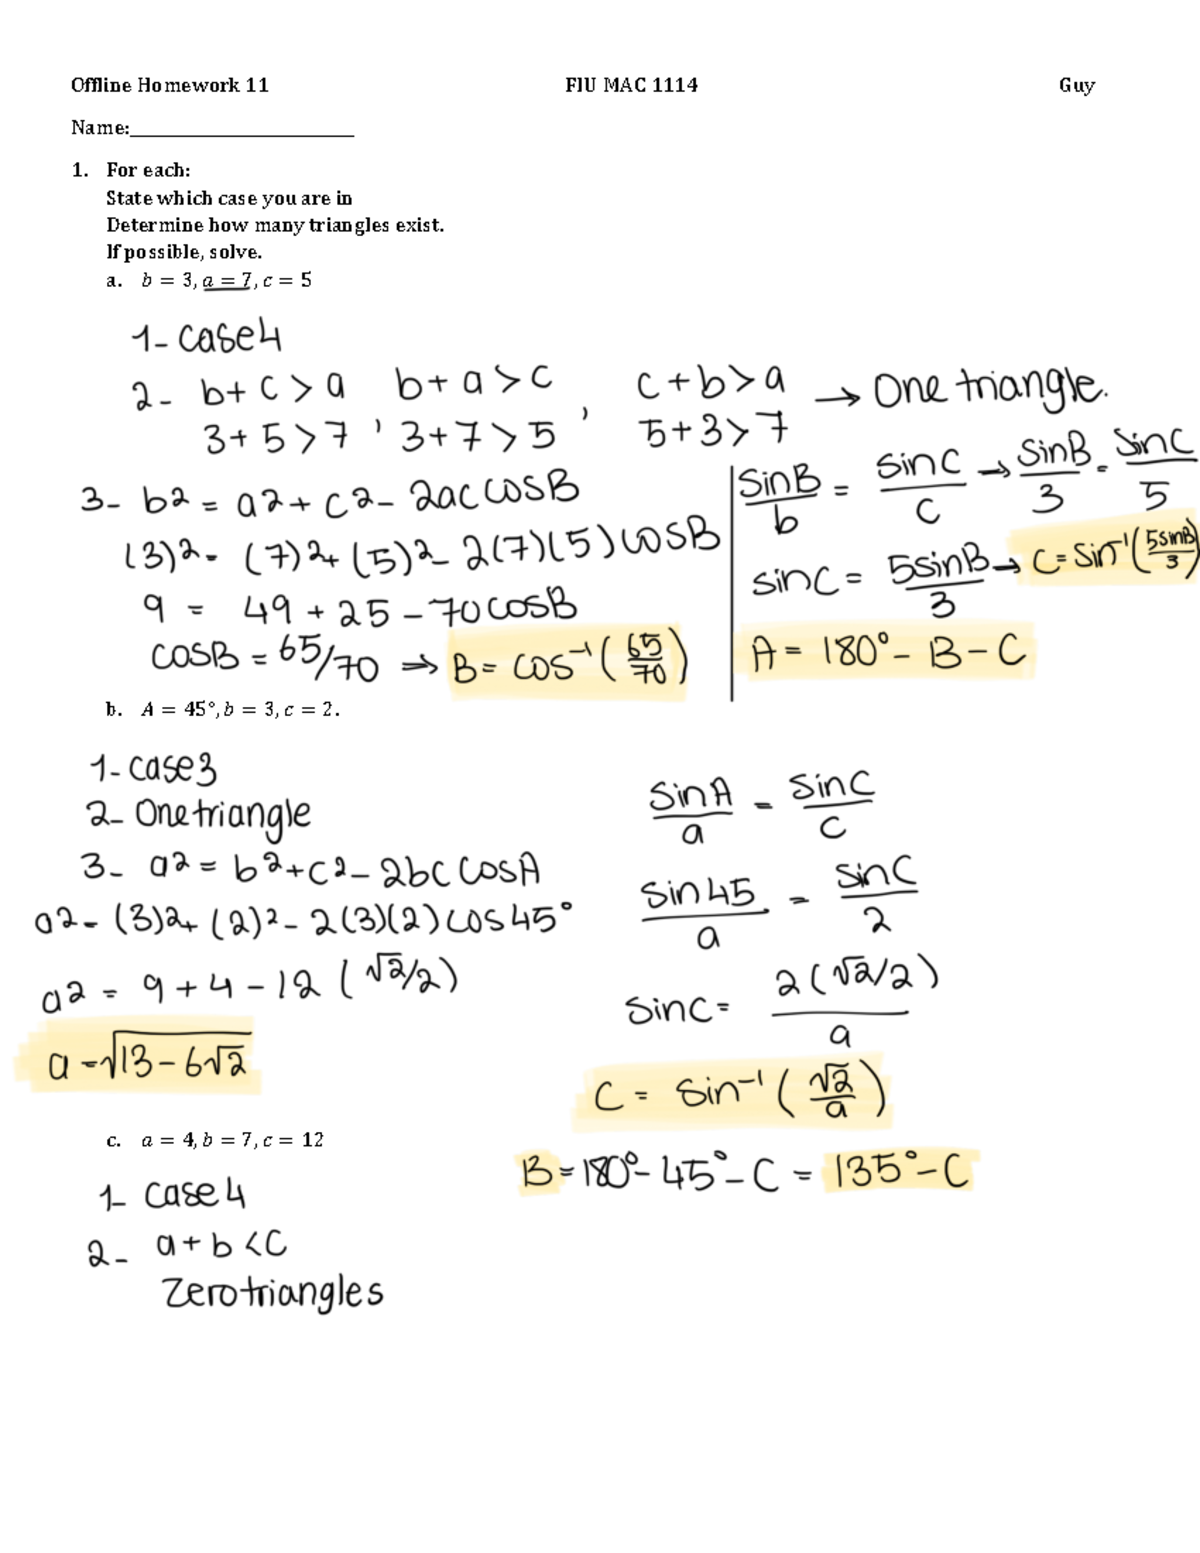 Offline Homework 11 FIU MAC 1114 Guy
Name:____________________
1. For each:
State which case you are in
Determine how many triangles exist.
If possible, solve.
a. b = 3, a = 7, c = 5
1- case4
2- b+c>a b+a>c c+b>a → One triangle.
3+5>7 , 3+7>5 , 5+3>7
3- b2 = a2+c2- 2ac cosB
(3)2= (7)2+(5)2- 2(7)(5)cosB
9 = 49+25-70cosB
cosB = 65/70 ⇒ B= cos-1(65/70)
sinB/b = sinC/c → sinB/3 = sinC/5
sinC = 5sinB/3 → C=sin-1(5sinB/3)
A= 180°- B-C
b. A = 45°, b = 3, c = 2.
1- case3
2- One triangle
3- a2 = b2+c2- 2bc cosA
a2= (3)2+(2)2- 2(3)(2)cos45°
a2 = 9+4-12(√2/2)
a=√13-6√2
sinA/a = sinC/c
sin45/a = sinC/2
sinC= 2(√2/2)/a
C = sin-1(√2/a)
B=180°-45°-C = 135°-C
c. a = 4, b = 7, c = 12
1- case4
2- a+b<C
Zero triangles